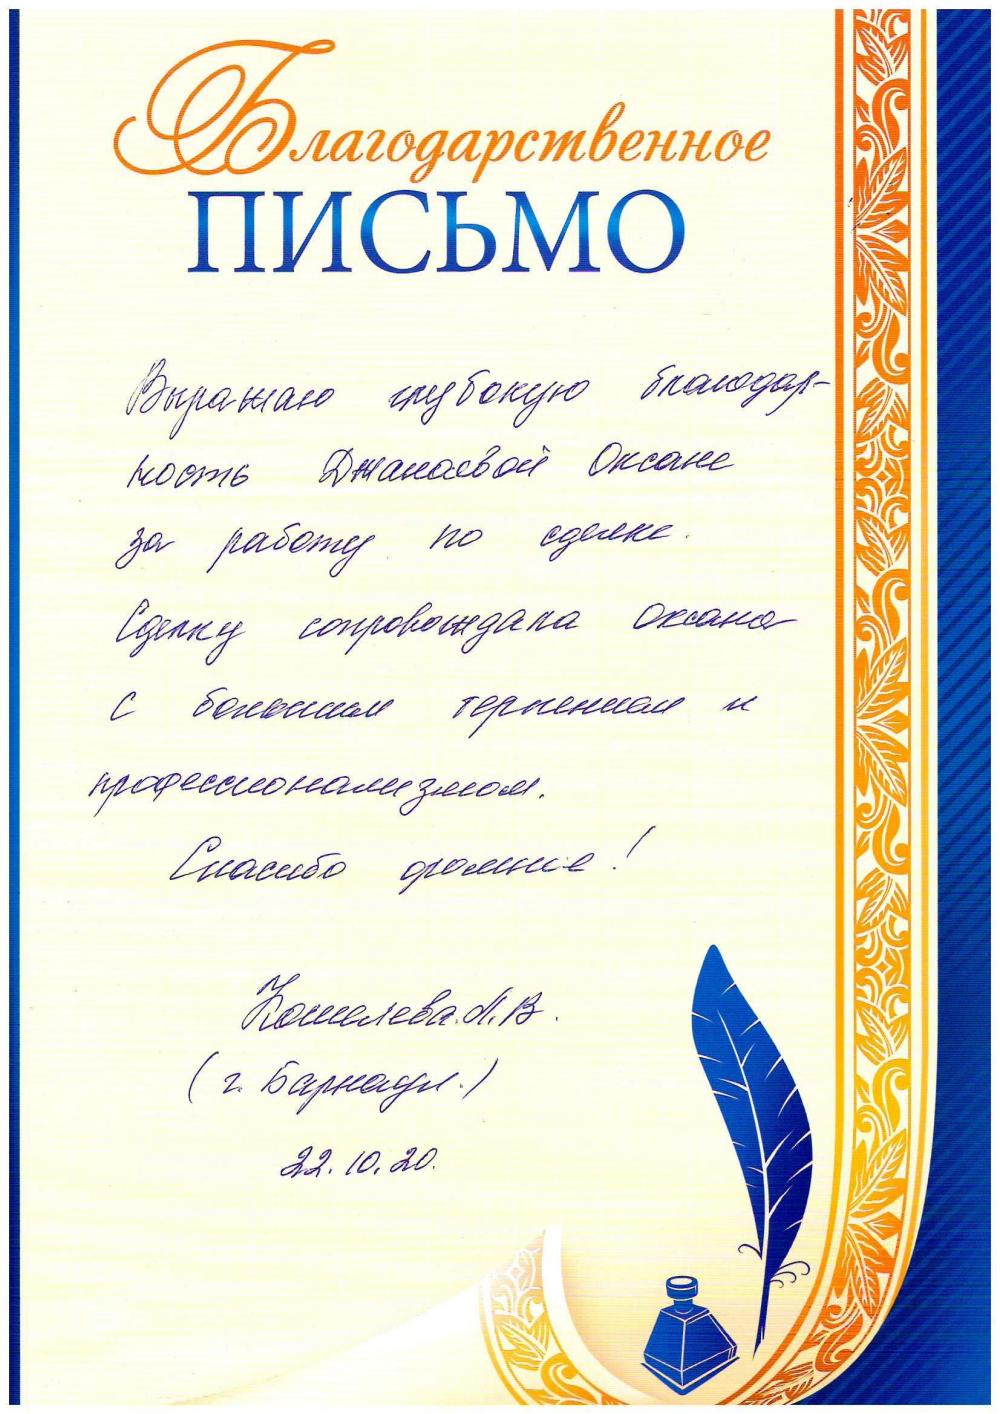 Благодарственное
ПИСЬМО
Выражаю глубокую благодар-
ность Джанаевой Оксане
за работу по сделке.
Сделку сопровождала Оксана
с большим терпением и
профессионализмом.
Спасибо огромное!
Кошелева Л.В.
(г. Барнаул.)
22.10.20.